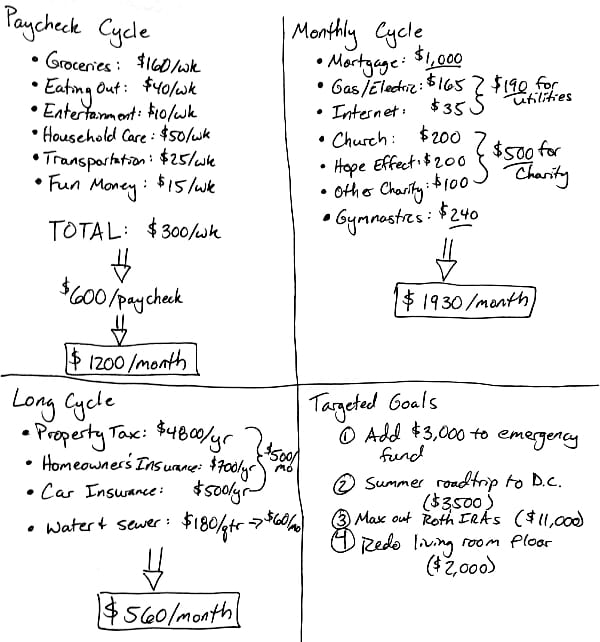 Paycheck Cycle
• Groceries: $160/wk
• Eating Out: $40/wk
• Entertainment: $10/wk
• Household Care: $50/wk
• Transportation: $25/wk
• Fun Money: $15/wk
TOTAL: $300/wk
$600/paycheck
$1200/month
Monthly Cycle
• Mortgage: $1,000
• Gas/Electric: $165
• Internet: $35
$190 for utilities
• Church: $200
• Hope Effect: $200
• Other Charity: $100
$500 for Charity
• Gymnastics: $240
$1930/month
Long Cycle
• Property Tax: $4800/yr
• Homeowner's Insurance: $700/yr
• Car Insurance: $500/yr
$500/mo
• Water + Sewer: $180/qtr → $60/mo
$560/month
Targeted Goals
① Add $3,000 to emergency
fund
② Summer roadtrip to D.C.
($3500)
③ Max out Roth IRAs ($11,000)
④ Redo living room floor
($2,000)